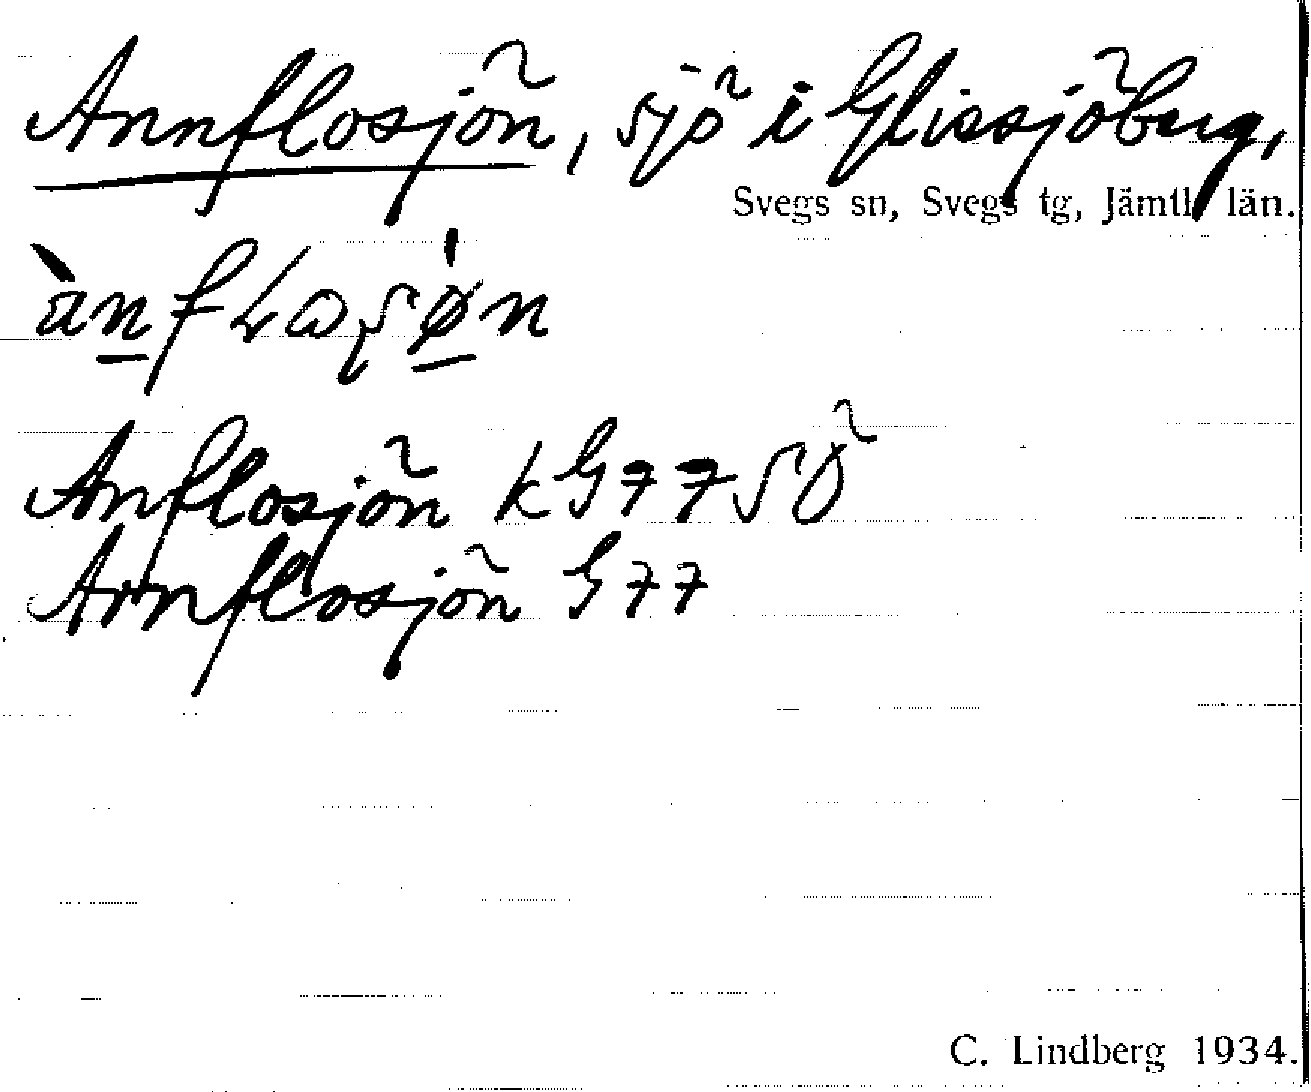 Annflosjön, sjö i Glissjöberg,
Svegs sn, Svegs tg, Jämtl. län.
Anflosjön k G 77 SÖ
Arnflosjön G 77
C. Lindberg 1934.